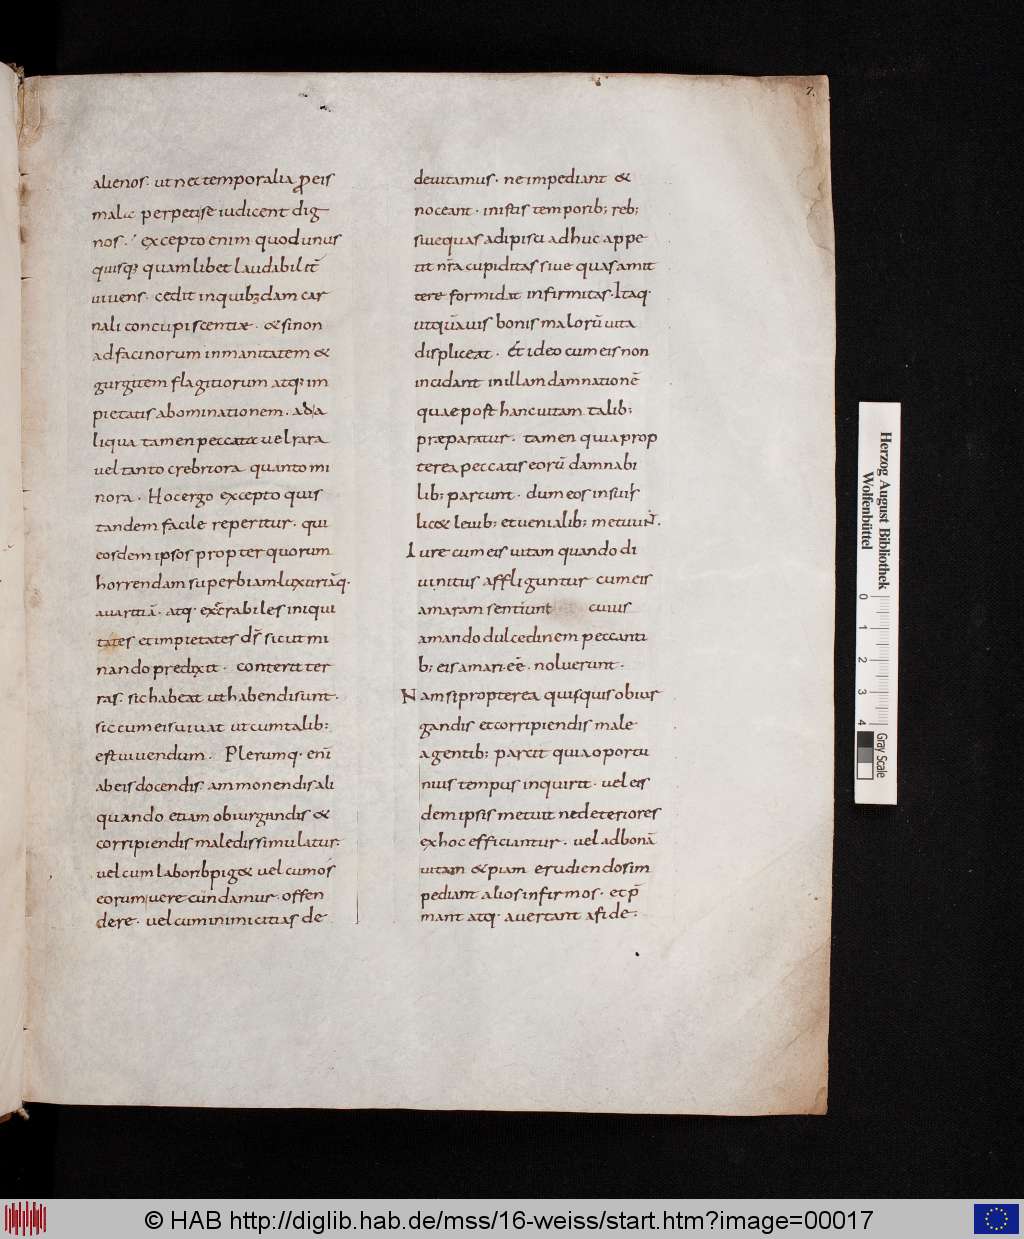 7.
alienos. ut nec temporalia p̱ eis
mala perpeti se iudicent dig
nos. excepto enim quod unus
quisq; quamlibet laudabilit̄
uiuens. cedit in quibꝫdam car
nali concupiscentiæ. & si non
ad facinorum inmanitatem &
gurgitem flagitiorum atq; im
pietatis abominationem. ad a
liqua tamen peccata uel rara
uel tanto crebriora quanto mi
nora. Hoc ergo excepto quis
tandem facile reperitur. qui
eosdem ipsos propter quorum
horrendam superbiam luxuriāq·
auaritiā. atq· execrabiles iniqui
tates et impietates ds̄ sicut mi
nando predixit. conterit ter
ras. sic habeat ut habendi sunt.
sic cum eis uiuat ut cum talib;
est uiuendum. Plerumq· enī
ab eis docendis ammonendis ali
quando etiam obiurgandis &
corripiendis male dissimulatur.
uel cum laborib piget uel cum os
eorum uere cundamur offen
dere. uel cum inimicitias de
deuitamus. ne impediant &
noceant. in istis temporib; reb;
siue quas adipisci adhuc appe
tit nr̄a cupiditas siue quas amit
tere formidat infirmitas. Itaq·
ut quāuis bonis malorū uita
displiceat. Et ideo cum eis non
incidant in illam damnationē
quae post hanc uitam talib;
præparatur. tamen quia prop
terea peccatis eorū damnabi
lib; parcunt. dum eos in suis
licet leuib; et uenialib; metuunt.
Iure cum eis uitam quando di
uinitus affliguntur cum eis
amaram sentiunt cuius
amando dulcedinem peccanti
b; eis amari ēē. noluerunt.
Nam si propterea quisquis obiur
gandis et corripiendis male
agentib; parcit quia oportu
nius tempus inquirit. uel eis
dem ipsis metuit ne deteriores
ex hoc efficiantur. uel ad bonā
uitam & piam erudiendos im
pediant alios infirmos. et p̄
mant atq· auertant a fide;
Herzog August Bibliothek
Wolfenbüttel
0 1 2 3 4
Gray Scale
© HAB http://diglib.hab.de/mss/16-weiss/start.htm?image=00017